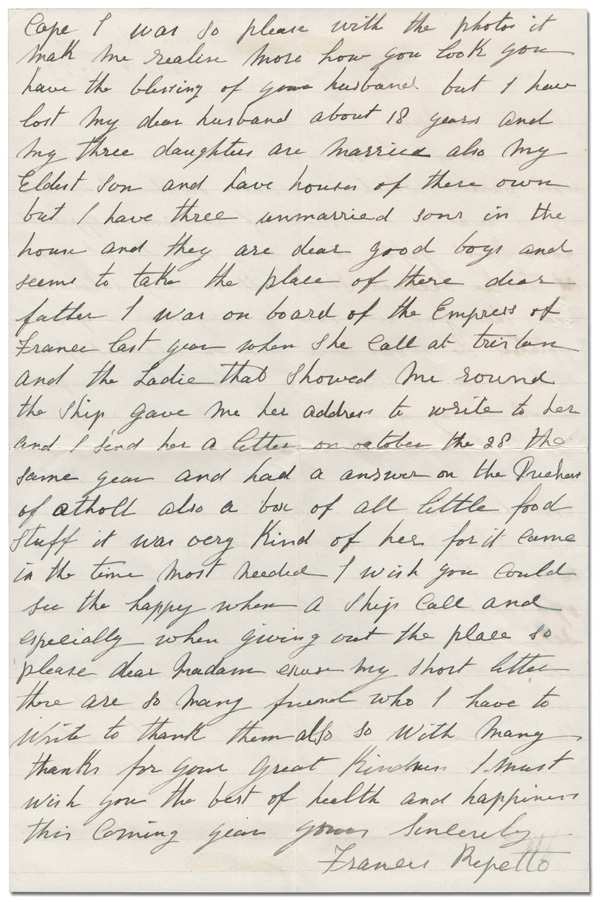 Cape I was so please with the photos it
mak me realise more how you look you
have the blessing of your husband. but I have
lost my dear husband about 18 years and
my three daughters are married also my
Eldest son and have houses of there own
but I have three unmarried sons in the
house and they are dear good boys and
seems to take the place of there dear
father I was on board of the Empress of
France last year when she call at tristan
and the Ladie that showed me round
the ship gave me her address to write to her
and I send her a letter on october the 28 the
same year and had a answer on the Duchess
of atholl also a box of all little food
stuff it was very kind of her for it came
in the time most needed I wish you could
see the happy when a ship call and
especially when giving out the place so
please dear madam excuse my short letter
there are so many friend who I have to
write to thank them also so with many
thanks for your great kindness I must
wish you the best of health and happiness
this coming year yours sincerely
Frances Repetto